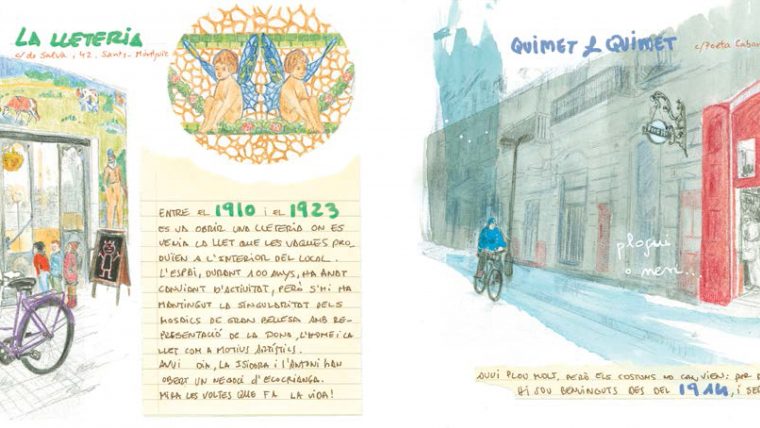 LA LLETERIA
c/ de Salvà, 42. Sants-Montjuïc
ENTRE EL 1910 I EL 1923
ES VA OBRIR UNA LLETERIA ON ES
VENIA LA LLET QUE LES VAQUES PRO
DUÏEN A L'INTERIOR DEL LOCAL.
L'ESPAI, DURANT 100 ANYS, HA ANAT
CANVIANT D'ACTIVITAT, PERÒ S'HI HA
MANTINGUT LA SINGULARITAT DELS
MOSAICS DE GRAN BELLESA AMB RE-
PRESENTACIÓ DE LA DONA, L'HOME I LA
LLET COM A MOTIUS ARTÍSTICS.
AVUI DIA, LA ISIDORA I L'ANTONI HAN
OBERT UN NEGOCI D'ECOCRIANÇA.
MIRA LES VOLTES QUE FA LA VIDA!
QUIMET & QUIMET
c/Poeta Caban
plogui
o neu...
AVUI PLOU MOLT, PERÒ ELS COSTUMS NO CANVIEN: PER
HI SOU BENVINGUTS DES DEL 1914, I SE